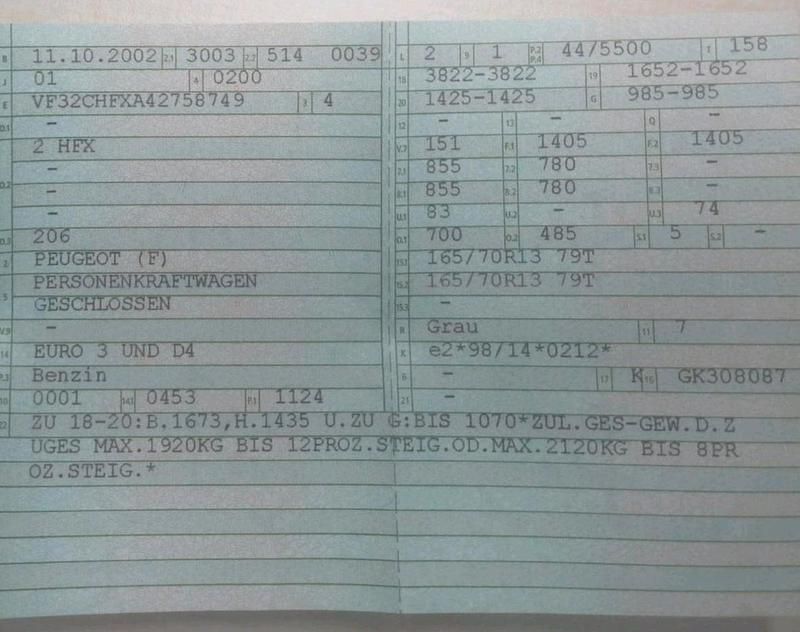 B 11.10.2002 2.1 3003 2.2 514 0039
J 01 4 0200
E VF32CHFXA42758749 3 4
D.1 –
D.2 2 HFX
–
–
–
D.3 206
2 PEUGEOT (F)
5 PERSONENKRAFTWAGEN
GESCHLOSSEN
V.9 –
14 EURO 3 UND D4
P.3 Benzin
10 0001 14.1 0453 P.1 1124
L 2 9 1 P.2 P.4 44/5500 T 158
18 3822-3822 19 1652-1652
20 1425-1425 G 985-985
12 – 13 – Q –
V.7 151 F.1 1405 F.2 1405
7.1 855 7.2 780 7.3 –
8.1 855 8.2 780 8.3 –
U.1 83 U.2 – U.3 74
O.1 700 O.2 485 S.1 5 S.2 –
15.1 165/70R13 79T
15.2 165/70R13 79T
15.3 –
R Grau 11 7
K e2*98/14*0212*
6 – 17 K 16 GK308087
21 –
22 ZU 18-20:B.1673,H.1435 U.ZU G:BIS 1070*ZUL.GES-GEW.D.Z
UGES MAX.1920KG BIS 12PROZ.STEIG.OD.MAX.2120KG BIS 8PR
OZ.STEIG.*